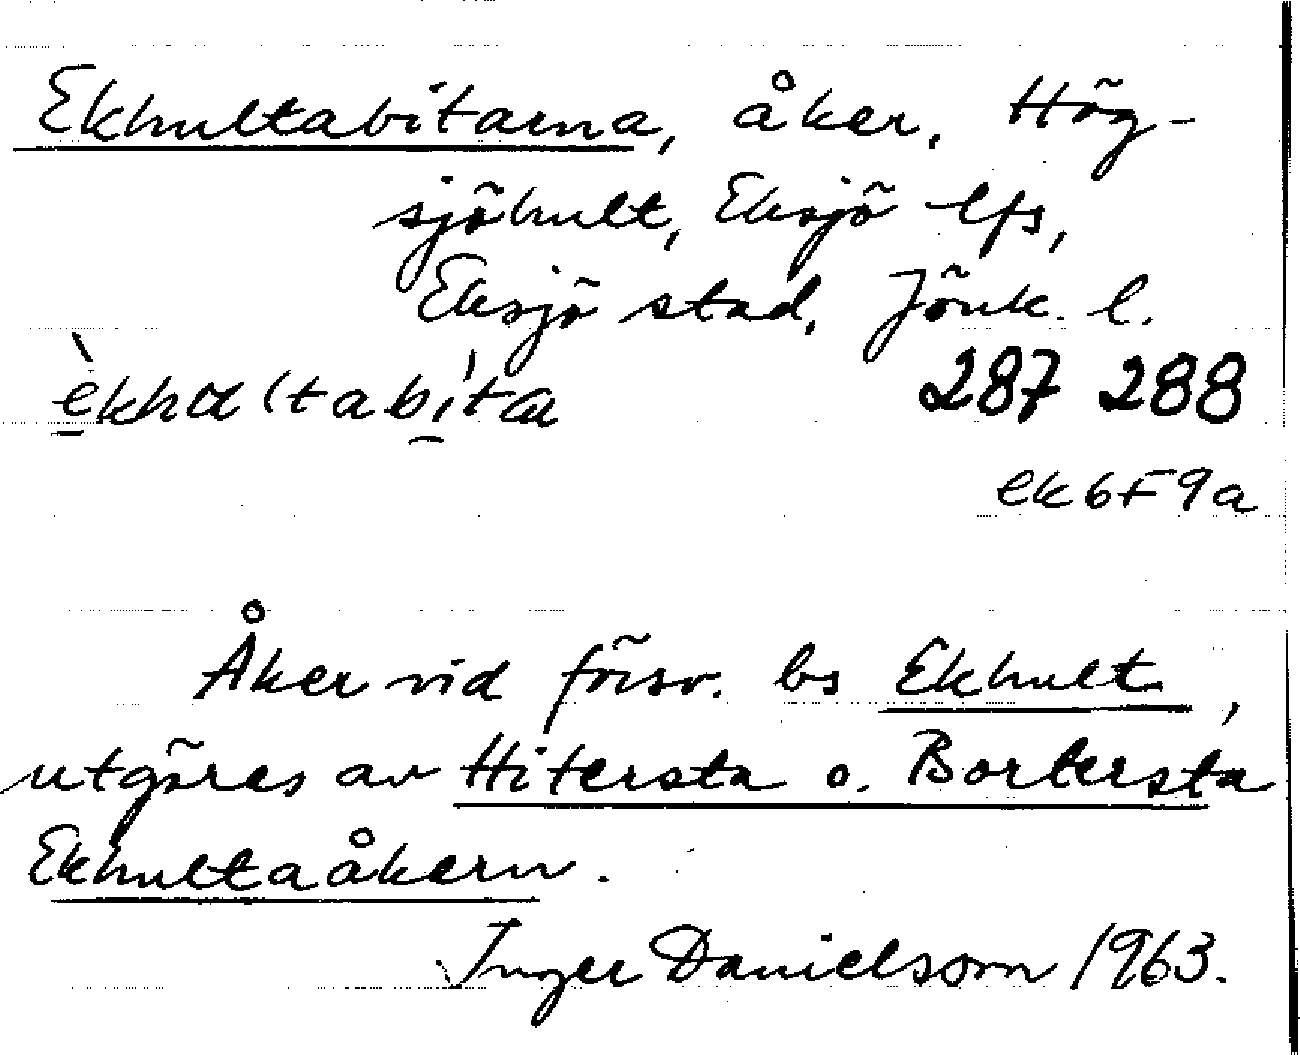 Ekhultabitarna, åker, Hög-
sjöhult, Eksjö lfs,
Eksjö stad, Jönk. l.
èkhɑltabí̱ta 287 288
ek6F9a
Åker vid försv. bs Ekhult,
utgöres av Hitersta o. Bortersta
Ekhultaåkern.
Inger Danielsson 1963.